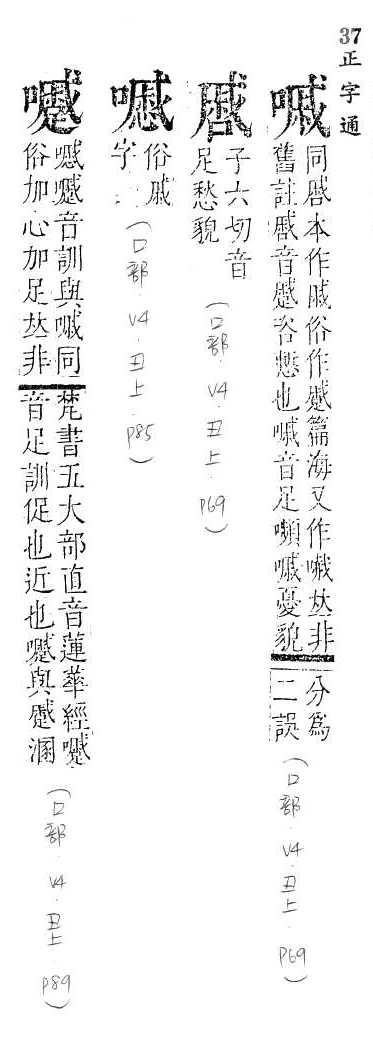 37 正字通
嘁
同慼本作戚俗作慼篇海又作嘁𠀤非
舊註慼音蹙咨慼也嘁音足嚬嘁憂貌
分爲
二誤
(口部．V4．丑上．P69)
子六切音
足愁貌
(口部．V4．丑上．P69)
俗戚
字
(口部．V4．丑上．P85)
音訓與嘁同
俗加心加足𠀤非
梵書五大部直音蓮華經
音足訓促也近也 與蹙溷
(口部．V4．丑上．P89)